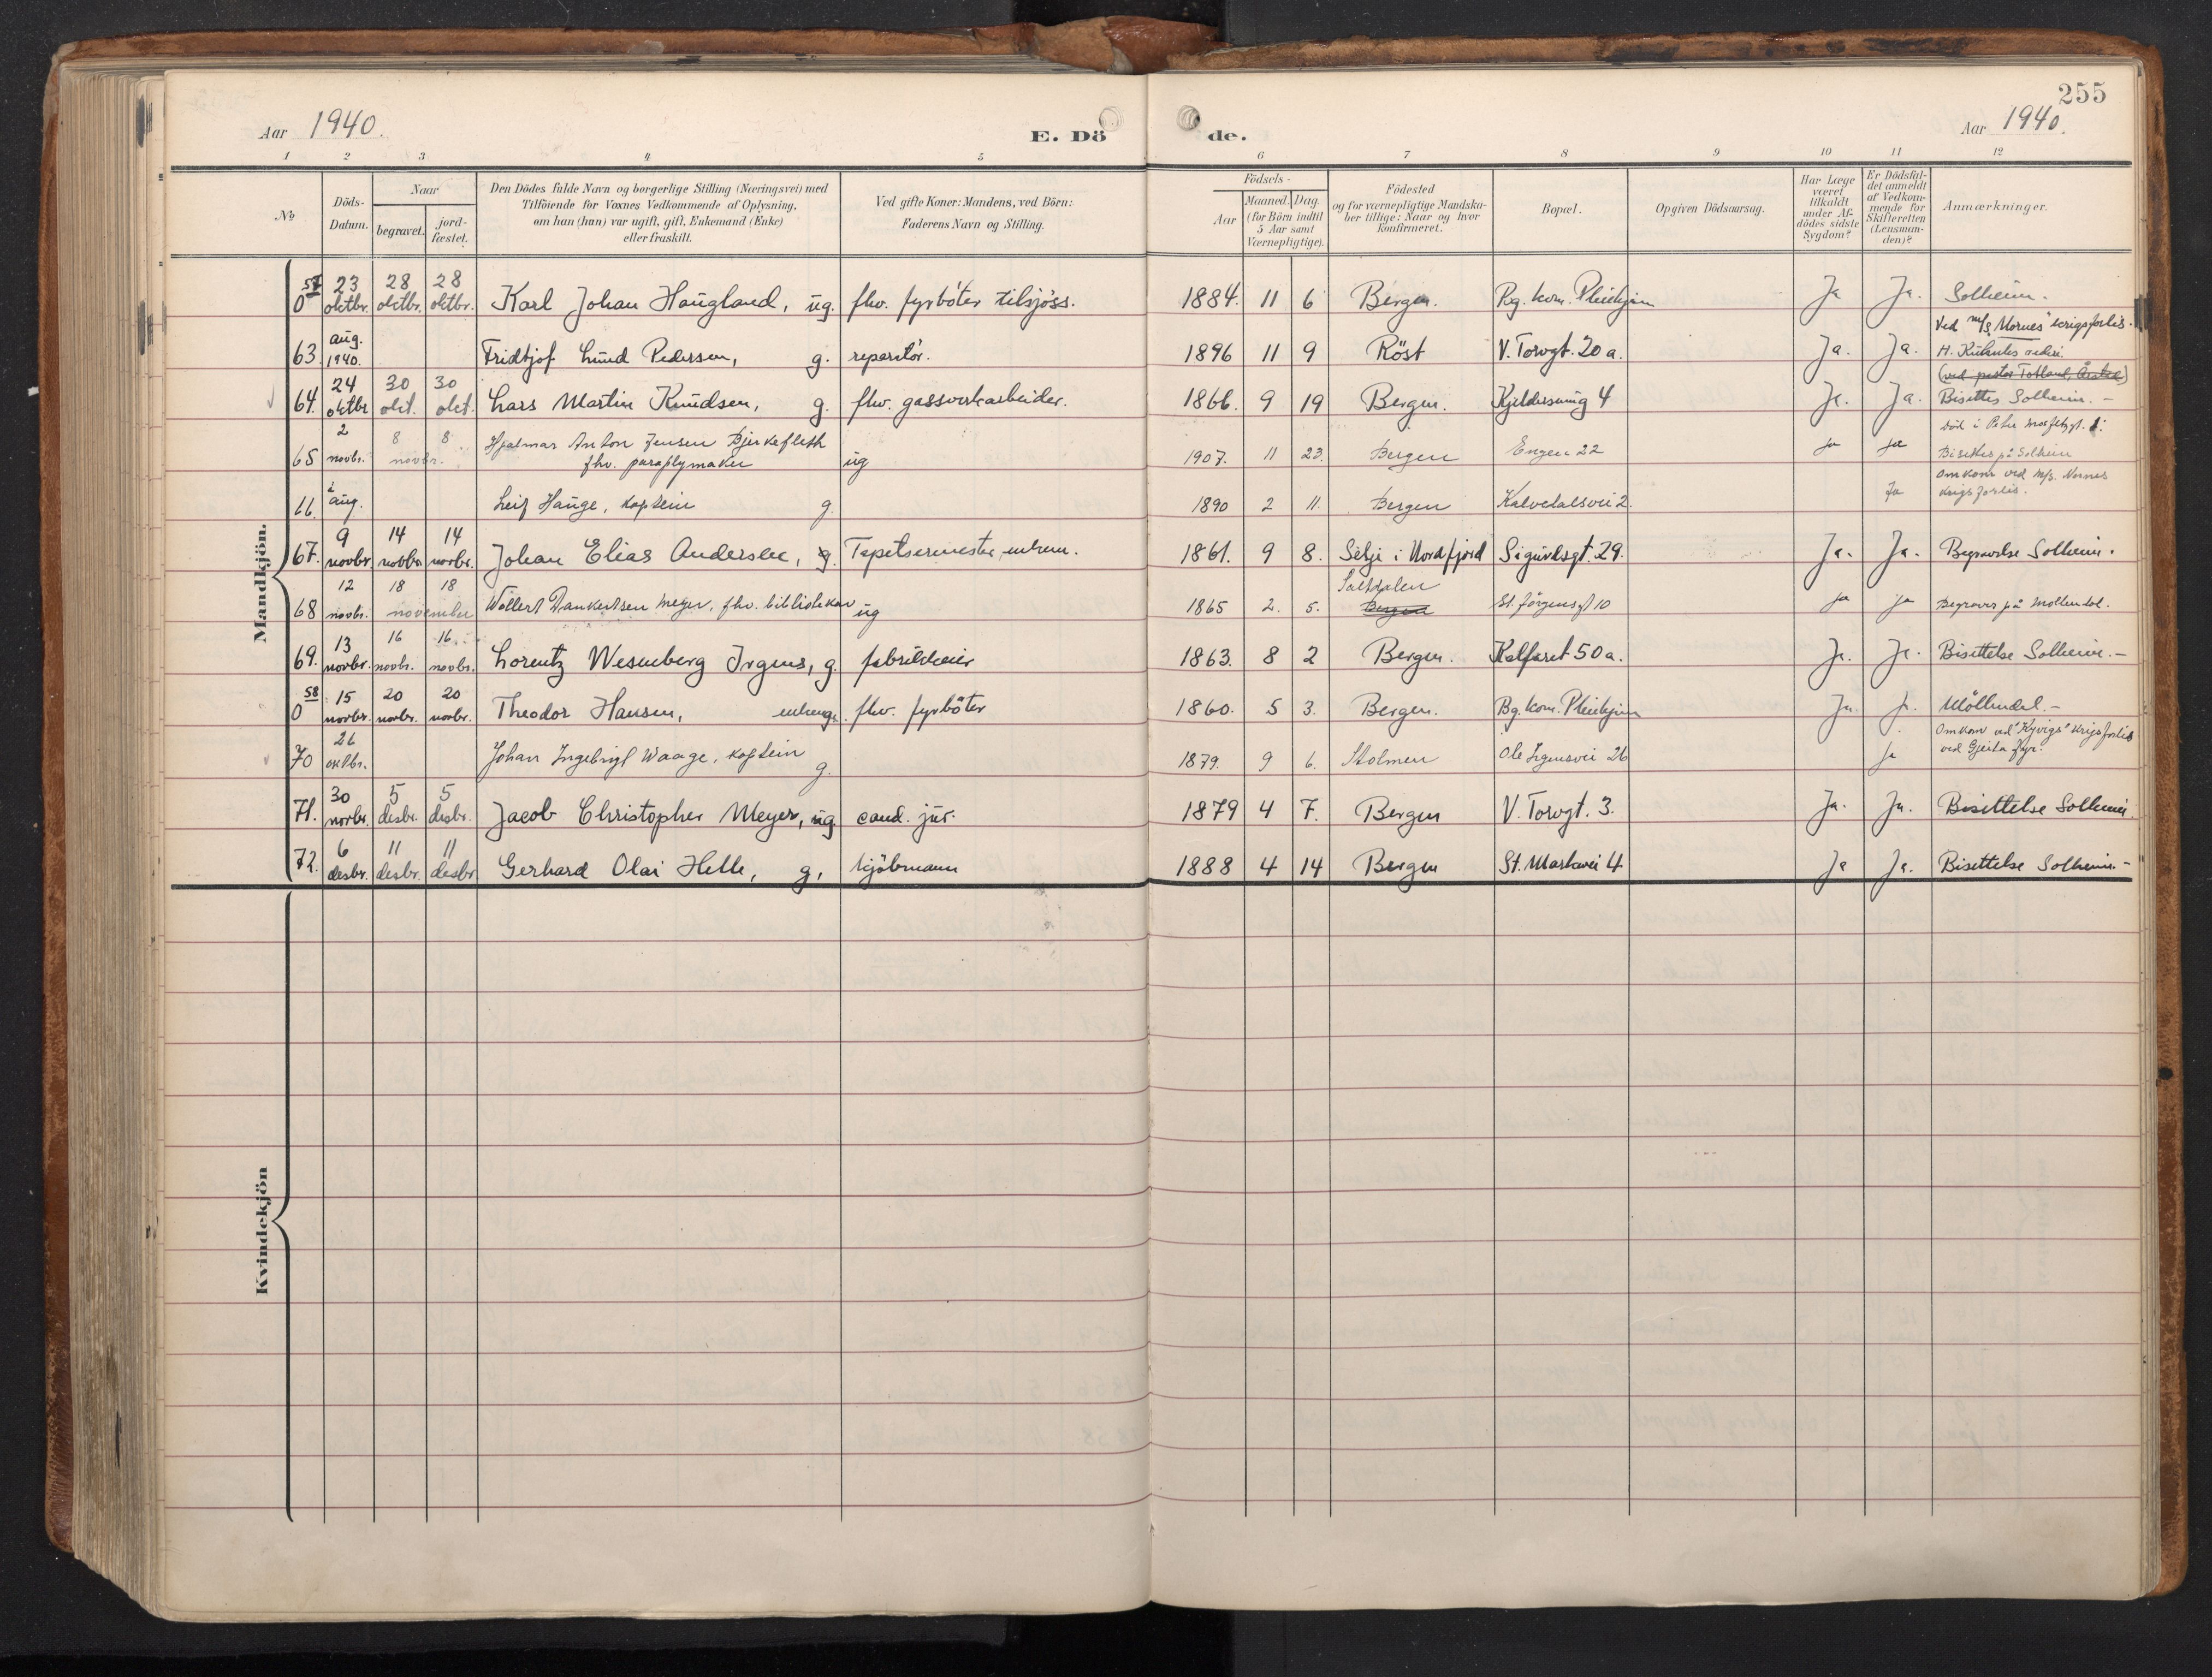 255
Aar 1940.
E. Döde.
Aar 1940.
1 2 3 4 5 6 7 8 9 10 11 12
No
Döds-Datum.
Naar
begravet.
jord-fæstet.
Den Dödes fulde Navn og borgerlige Stilling (Næringsvei) med
Tilföiende for Voxnes Vedkommende af Oplysning,
om han (hun) var ugift, gift, Enkemand (Enke)
eller fraskilt.
Ved gifte Koner: Mandens, ved Börn:
Faderens Navn og Stilling.
Födsels-
Aar
Maaned. Dag.
(for Börn indtil
5 Aar samt
Værnepligtige).
Födested
og for værnepligtige Mandska-
ber tillige: Naar og hvor
konfirmeret.
Bopæl.
Opgiven Dödsaarsag.
Har Læge
været
tilkaldt
under Af-
dödes sidste
Sygdom?
Er Dödsfal-
det anmeldt
af Vedkom-
mende for
Skifteretten
(Lensman-
den)?
Anmærkninger.
Mandkjön.
0 57 23 oktbr. 28 oktbr. 28 oktbr. Karl Johan Haugland, ug. fhv. fyrbøter tilsjøss. 1884. 11 6 Bergen. Bg. kom. Pleiehjem Ja Ja. Solheim.
63. aug. 1940. Fridtjof Lund Pedersen, g. reparatör. 1896 11 9 Röst V. Torvgt. 20 a. Ja. Ja. Ved m/s "Mornes" krigsforlis. H. Kuhnles rederi.
64. 24 oktbr 30 okt. 30 okt. Lars Martin Knudsen, g. fhv. gassverkarbeider. 1866. 9 19 Bergen. Kjeldersmug 4 Ja. Ja. (ved pastor Totland, Årstad) Bisettes Solheim. –
65 2 novbr. 8 8 novbr. Hjalmar Anton Jensen Bjerkefleth fhv. paraplymaker ug 1907. 11 23. Bergen Engen 22 Ja Ja Bisettes på Solheim
66. i aug. Leif Hauge, kaptein g. 1890 2 11. Bergen Kalvedalsvei 2. Ja Omkom ved m/s. Nornes krigsforlis.
67. 9 novbr 14 novbr 14 novbr. Johan Elias Andersen, g. Tapetserermester, enkem. 1861. 9 8. Selje i Nordfjord Sigurdsgt. 29. Ja. Ja. Begravelse Solheim.
68 12 novbr. 18 18 november Wollert Dankertsen Meyer, fhv. bibliotekar ug 1865 2. 5. Saltdalen Bergen St. Jörgensgt 10 Ja Ja Begraves på Möllendal.
69. 13 novbr. 16 novbr. 16 novbr. Lorentz Wesenberg Irgens, g. fabrikkeier 1863. 8 2 Bergen. Kalfaret 50 a. Ja. Ja. Bisettelse Solheim. –
0 58 15 novbr. 20 novbr. 20 novbr. Theodor Hansen, enkem. fhv. fyrböter 1860. 5 3. Bergen. Bg. kom. Pleiehjem Ja. Ja. Möllendal. –
70 26 oktbr. Johan Ingebrigt Waage, kaptein g. 1879. 9 6. Stolmen Ole Irgensvei 26 Ja Omkom ved "Kyvigs" krigsforlis ved Gjeita fyr.
71. 30 novbr. 5 desbr. 5 desbr. Jacob Christopher Meyer, ug. cand. jur. 1879 4 7. Bergen V. Torvgt. 3. Ja. Ja. Bisettelse Solheim.
72. 6 desbr. 11 desbr. 11 desbr Gerhard Olai Helle, g, kjöbmann 1888 4 14 Bergen St. Markevei 4 Ja Ja. Bisettelse Solheim. –
Kvindekjön